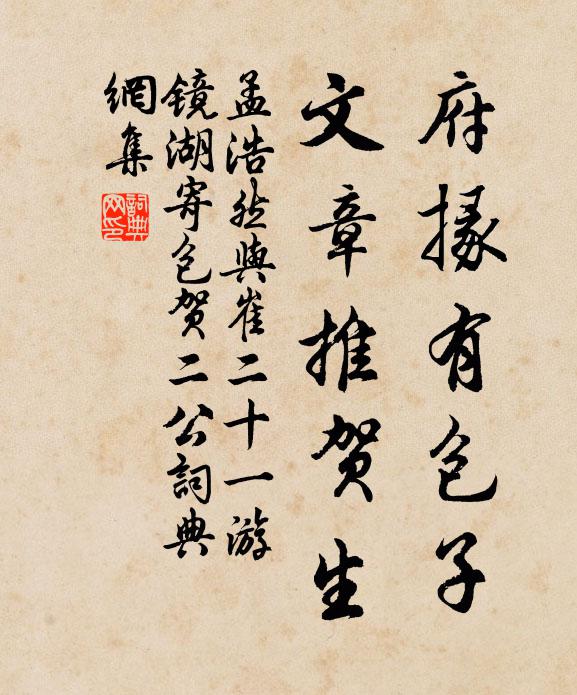 府掾有包子
文章推贺生
孟浩然與崔二十一游
镜湖寄包贺二公詞典
網集
詞典
网印